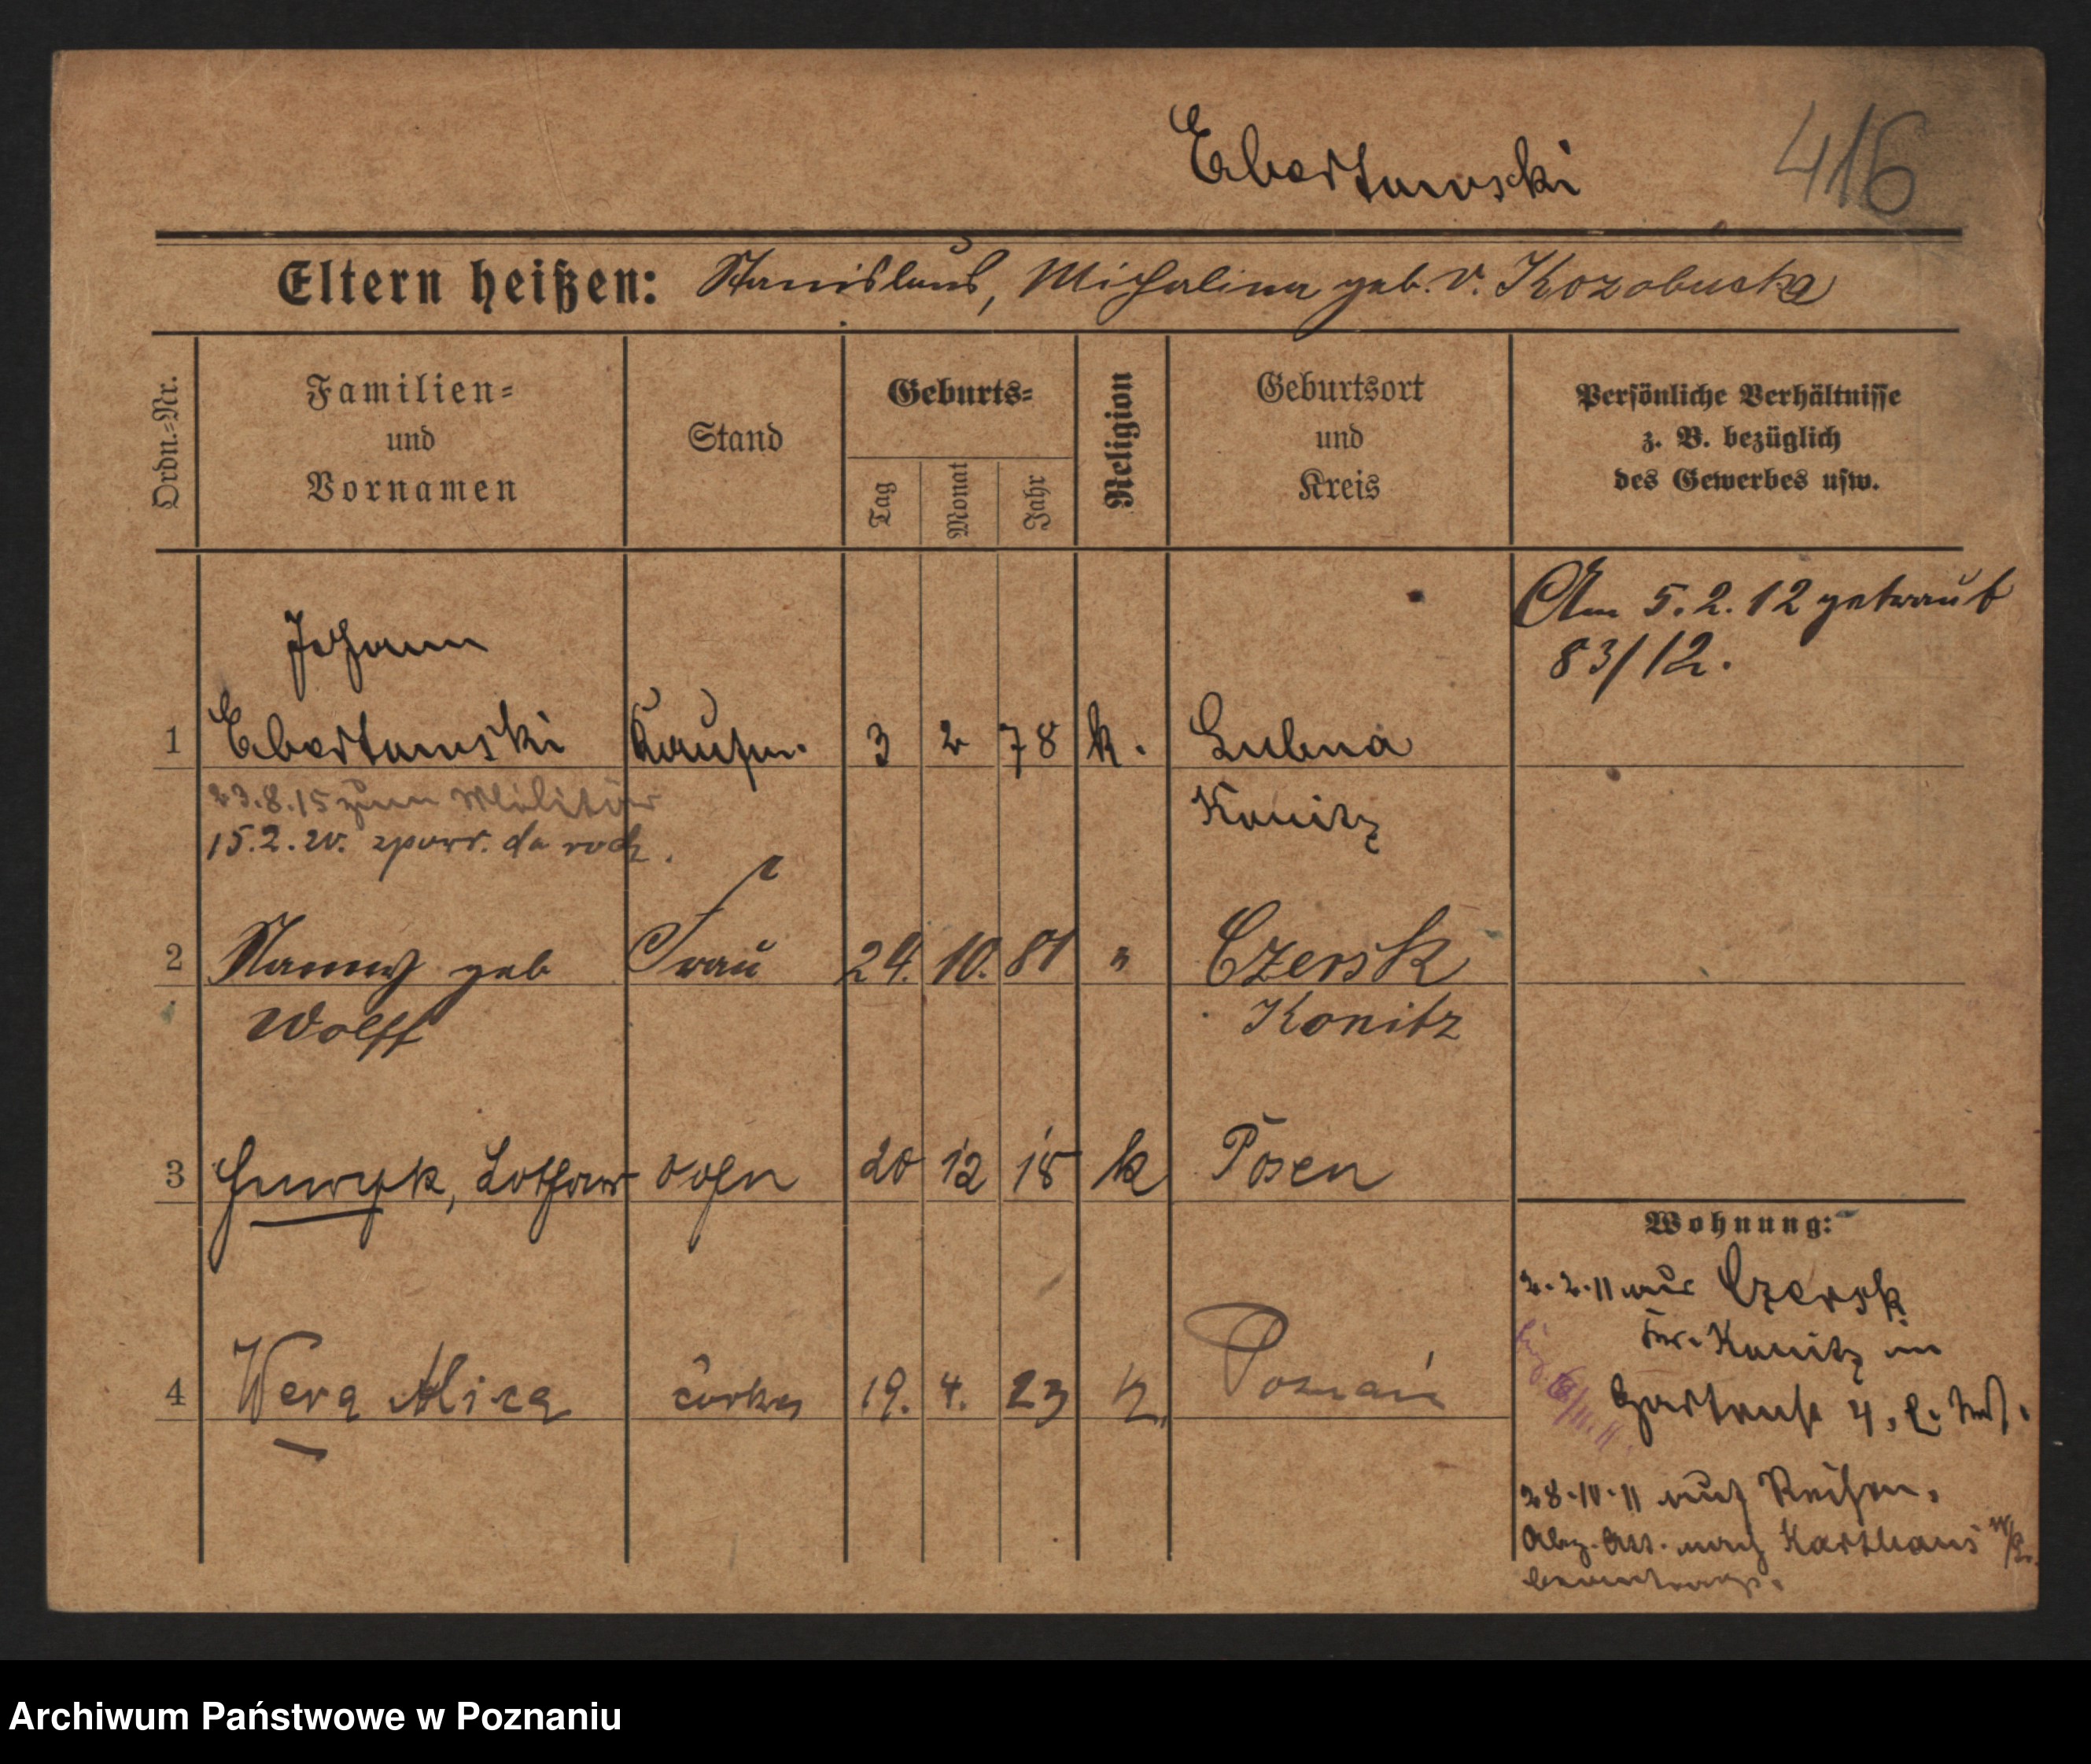 Ebertowski 416
Eltern heißen: Stanislaus, Michalina geb. v. Kozobucka
Ordn.=Nr.
Familien=
und
Vornamen
Stand
Geburts=
Tag
Monat
Jahr
Religion
Geburtsort
und
Kreis
Persönliche Verhältnisse
z. B. bezüglich
des Gewerbes usw.
Am 5.2.12 getraut
83/12.
Johann
1 Ebertowski Kaufm. 3 2 78 k. Lubna
23.8.15 zum Militär Konitz
15.2.20. zpowr. do rodz.
2 Nanny geb Frau 24. 10. 81 " Czersk
Wolff Konitz
3 Henryk, Lothar Sohn 20 12 15 k Posen
4 Wera Alica córka 19. 4. 23 k. Poznań
Wohnung:
2.2.11 aus Czersk
Kr. Konitz in
4.
28.10.11 auf Reisen.
Abz. Att. nach Karthaus W/Pr.
beantragt.
Archiwum Państwowe w Poznaniu